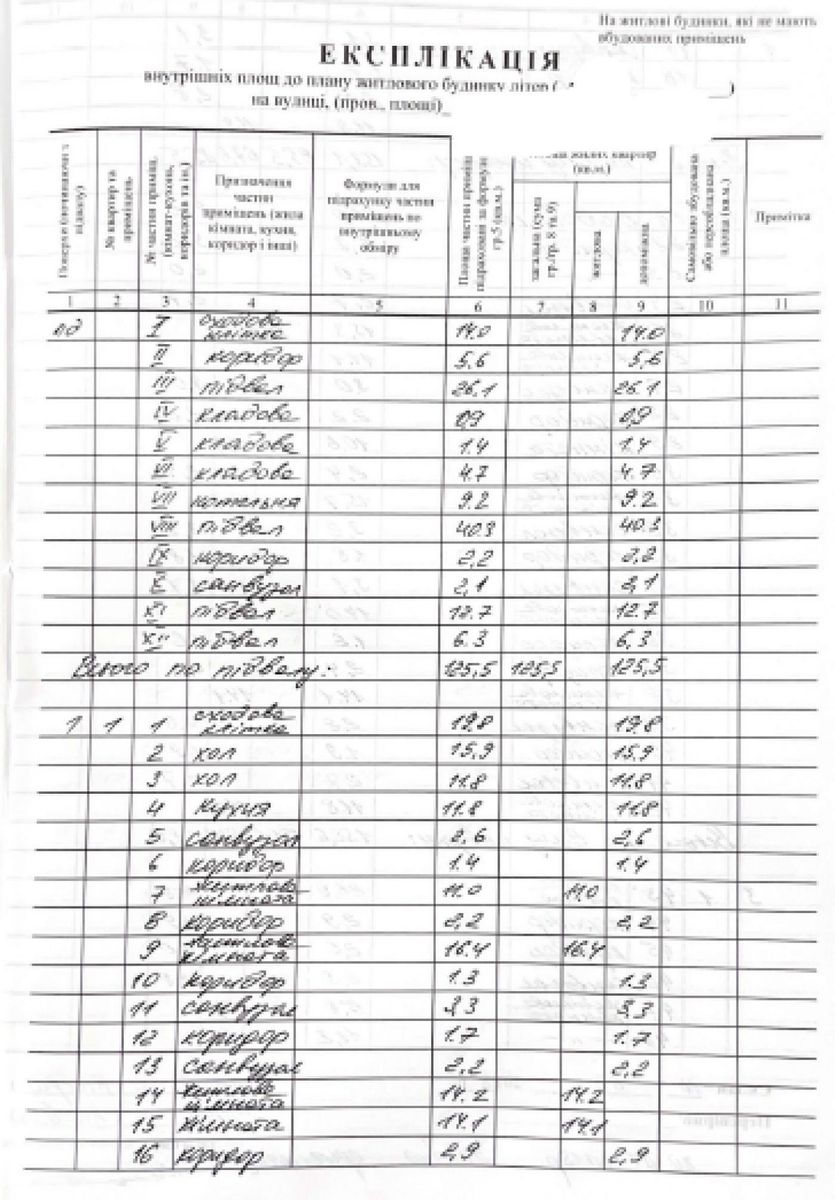 На житлові будинки, які не мають
вбудованих приміщень
ЕКСПЛІКАЦІЯ
внутрішніх площ до плану житлового будинку літер (
)
на вулиці, (пров., площі)_
Поверхи (починаючи з підвалу)
№ квартир та приміщень
№ частин приміщ. (кімнат-кухонь, коридорів та ін.)
Призначення частин приміщень (жила кімната, кухня, коридор і інші)
Формули для підрахунку частин приміщень по внутрішньому обміру
Площа частин приміщ. підрахована за формулою гр.5 (кв.м.)
жилих квартир (кв.м.)
загальна (сума гр./гр. 8 та 9)
житлова
допоміжна
Самовільно збудована або переобладнана площа (кв.м.)
Примітка
1 2 3 4 5 6 7 8 9 10 11
пд I сходова клітка 14.0 14.0
II коридор 5,6 5,6
III підвал 26.1 26.1
IV кладова 0,9 0,9
V кладова 1.4 1.4
VI кладова 4.7 4.7
VII котельня 9.2 9.2
VIII підвал 40.3 40.3
IX коридор 2,2 2,2
X санвузол 2,1 2,1
XI підвал 12.7 12.7
XII підвал 6.3 6,3
Всього по підвалу: 125,5 125,5 125,5
1 1 1 сходова клітка 19.8 19.8
2 хол 15,9 15,9
3 хол 11.8 11.8
4 кухня 11.8 11.8
5 санвузол 2,6 2,6
6 коридор 1.4 1.4
7 житлова кімната 11.0 11.0
8 коридор 2,2 2,2
9 житлова кімната 16.4 16.4
10 коридор 1.3 1.3
11 санвузол 3,3 3,3
12 коридор 1.7 1.7
13 санвузол 2,2 2,2
14 житлова кімната 14.2 14.2
15 кімната 14.1 14.1
16 коридор 2,9 2,9